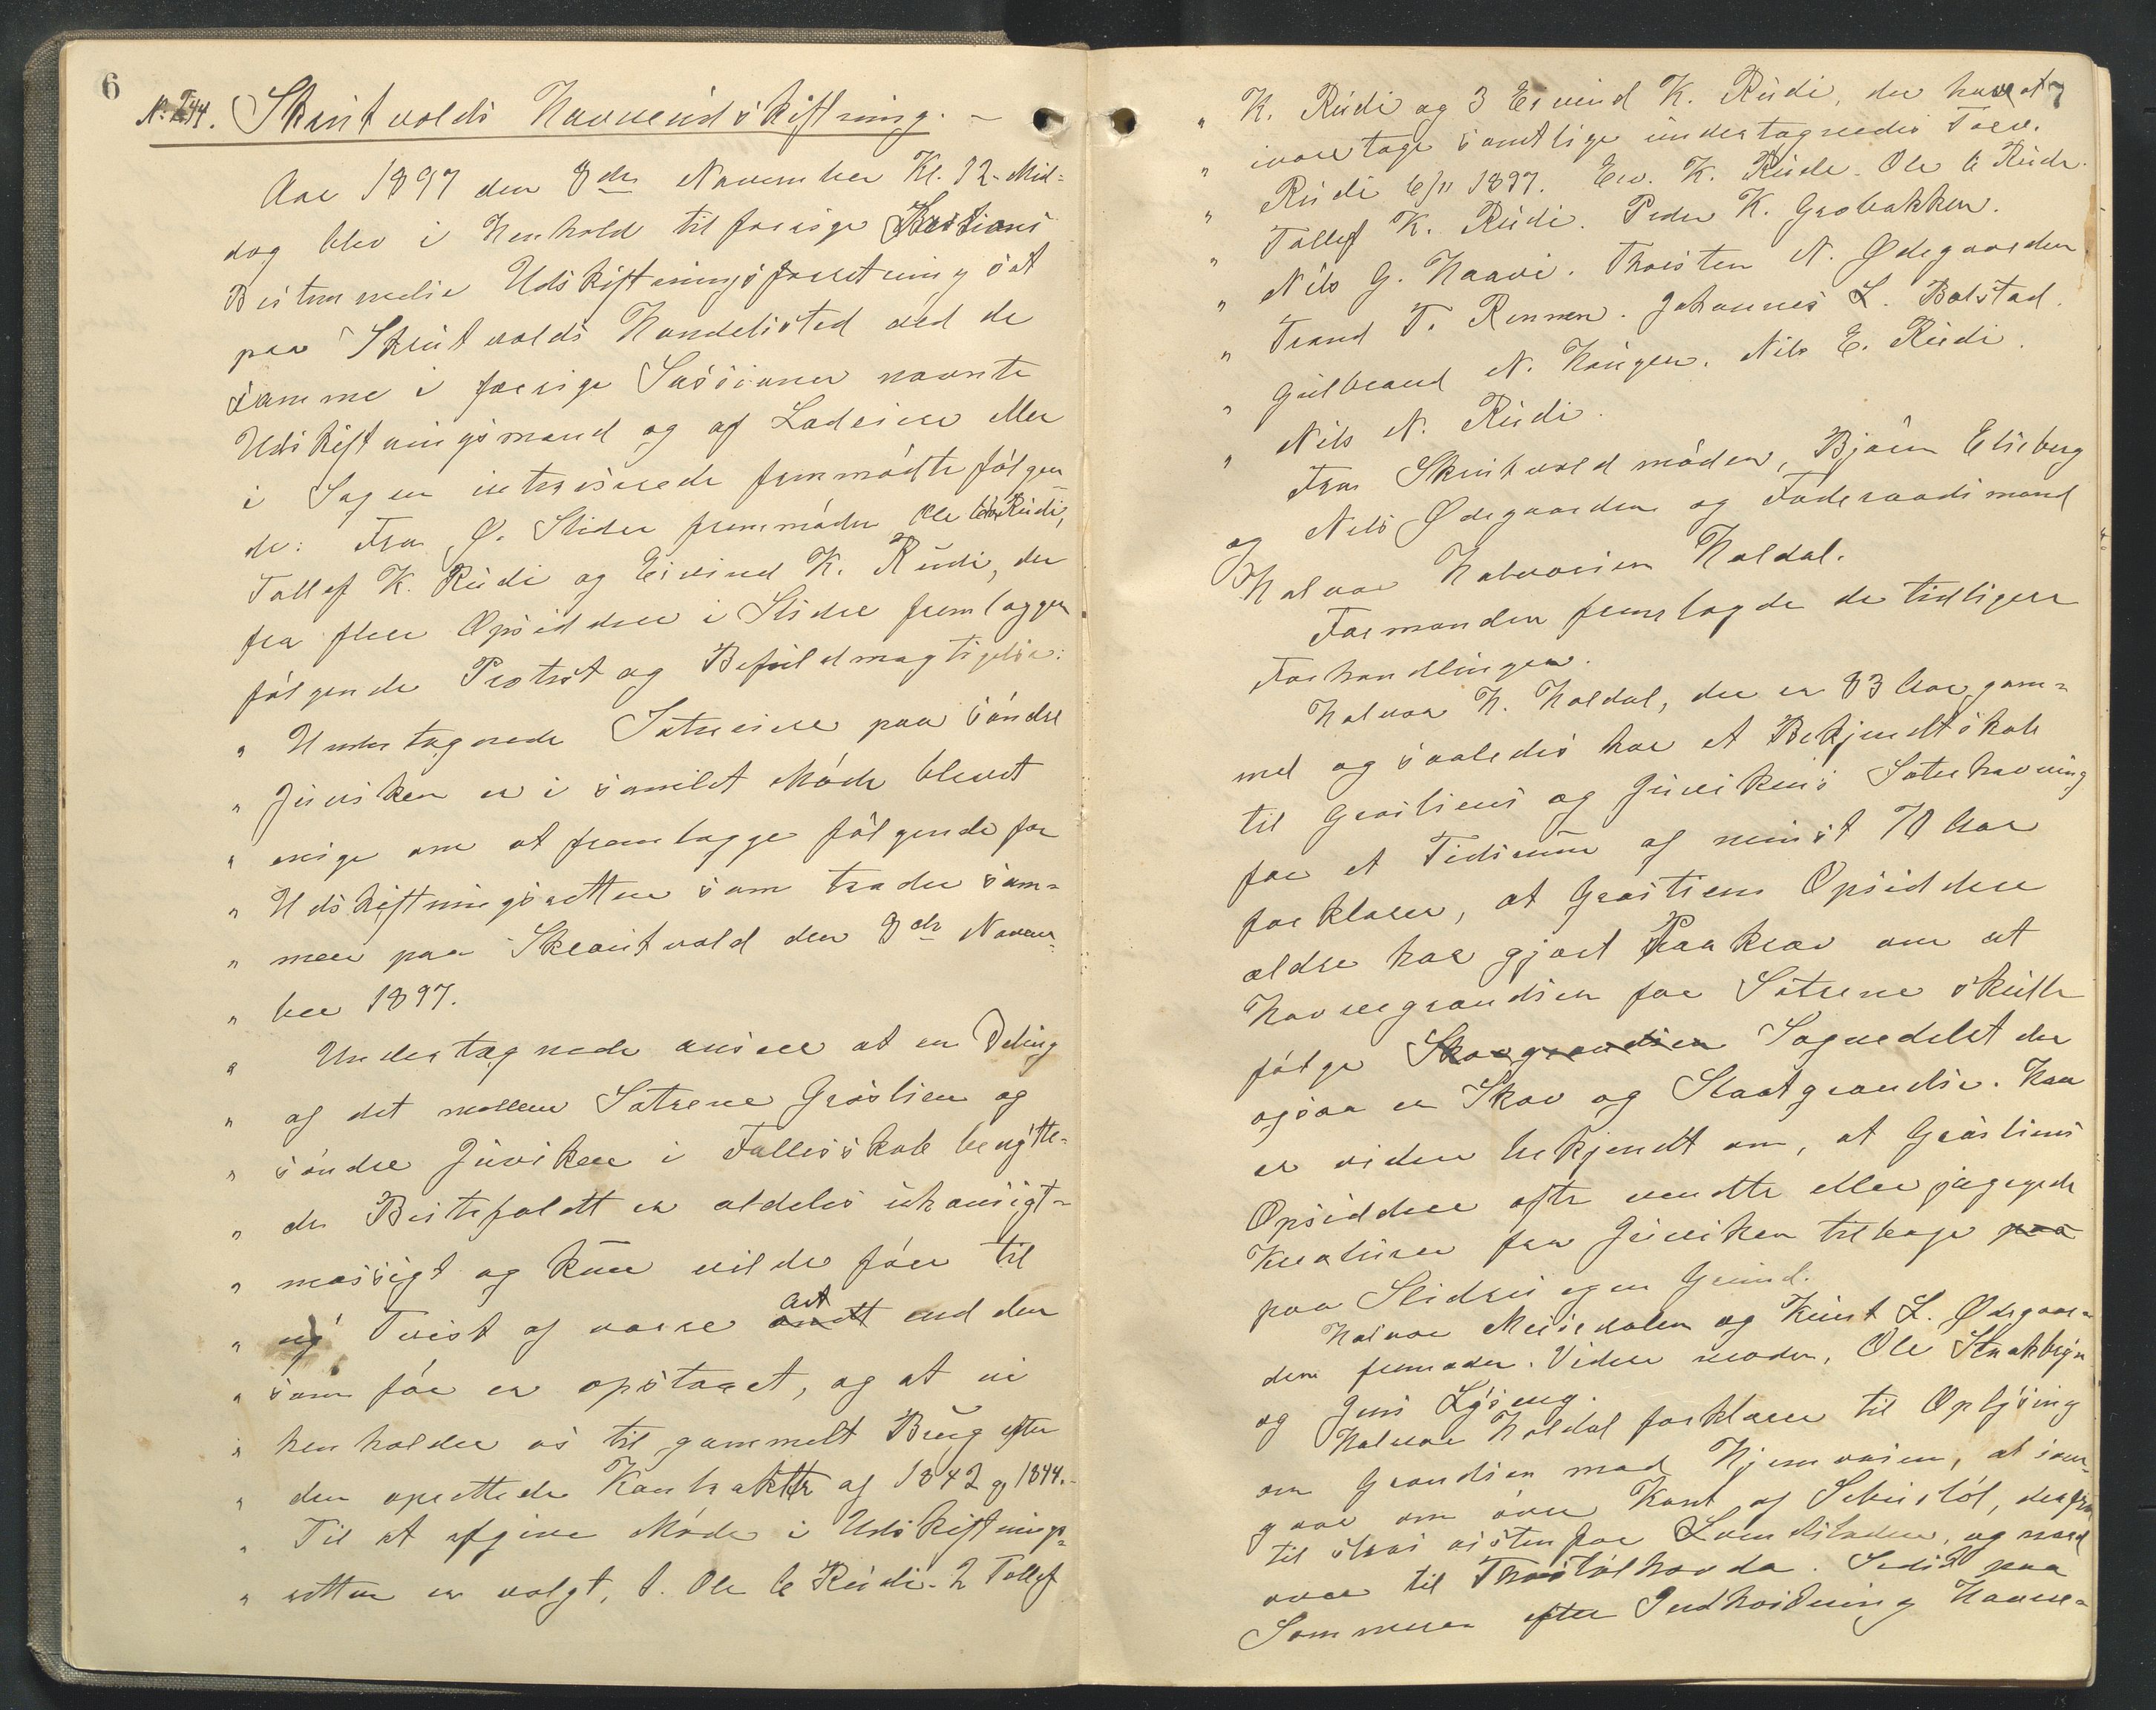 6
No. 244. Skrutvolds Havneudskiftning. –
Aar 1897 den 8de November Kl. 12 Mid-
dag blev i Henhold til forrige Sessions
Bestemmelse Udskiftningsforretning sat
paa Skrutvolds Handelssted ved de
samme i forrige Sessioner nævnte
Udskiftningsmænd og af Lodeiere eller
i Sagen intresserede fremmødte følgen-
de: Fra Ø. Slidre fremmøder Ole Rudi,
Tollef K. Rudi og Eivind K. Rudi, der
fra flere Opsiddere i Slidre fremlægger
følgende Protest og Befuldmægtigelse:
" Undertegnede Sætereiere paa søndre
" Juviken er i samlet Møde blevet
" enige om at fremlægge følgende for
" Udskiftningsretten som træder sam-
" men paa Skrautvold den 8de Novem-
" ber 1897.
" Undertegnede anser at en Deling
" af det mellem Sætrene Grøslien og
" søndre Juviken i Fællesskab benytte-
" de Beitefelt er aldeles uhensigt-
" mæssigt og kun vilde føre til
" ny Tvist af værre art end den
" som før er opstaaet, og at vi
" henholder os til gammelt Brug efter
" den oprettede Kontrakter af 1842 og 1844.–
" Til at afgive Møde i Udskiftnings-
" retten er valgt, 1. Ole E Rudi. 2 Tollef
7
" K. Rudi og 3 Eivind K. Rudi, der har at
" ivaretage samtlige undertegnedes Tarv.
" Rudi 6/11 1897. Eiv. K. Rudi. Ole E Rudi.
" Tollef K. Rudi. Peder K. Grobakken.
" Nils G. Haavi. Thorsten N. Ødegaarden
" Trond T. Rennen. Johannes L. Bolstad.
" Gulbrand N. Haugen. Nils E. Rudi.
" Nils N. Rudi.
Fra Skrutvold møder, Bjørn Elseberg
og Nils Ødegaarden og Føderaadsmand
Halvor Halvorsen Haldal.
Formanden fremlagde de tidligere
Forhandlinger.
Halvor H. Haldal, der er 83 Aar gam-
mel og saaledes har et Bekjendtskab
til Grøsliens og Juvikens Sæterhavning
for et Tidsrum af minst 70 Aar
forklarer, at Grøsliens Opsiddere
ældre har gjort Paakrav om at
Havnegrændsen for Sætrene skulle
følge Skovgrændsen Sognedelet der
ogsaa er Skov og Slaatgrændse. Han
er viden bekjendt om, at Grøsliens
Opsiddere ofte vendte eller jagede
Kreaturer fra Juviken tilbage paa
paa Slidres egen Grund.
Halvor Meisdalen og Knut L. Ødegaar-
den fremøder. Videre møder, Ole Strakbryn
og Jens Lyseng.
Halvor Haldal forklarer til Oplysing
om Grændsen mod Hjemvasen, at den
gaar om øvre Kant af Seteistøl, derfra
til østenfor Lomtstaden, og nord
over til Thorstølhovda. Sidst paa
Sommeren efter Indhøstning Havne-